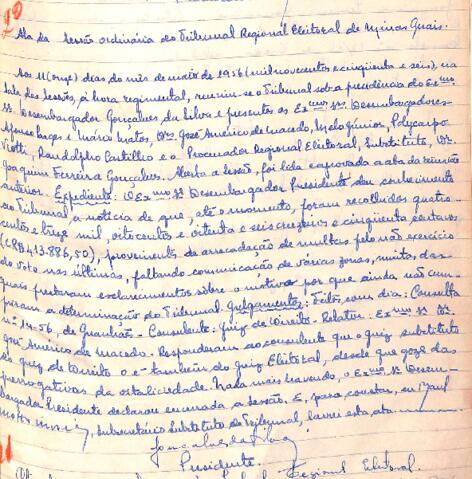 Ata da sessão ordinária do Tribunal Regional Eleitoral de Minas Gerais.
Aos 11 (onze) dias do mês de maio de 1956 (mil novecentos e cinquenta e seis), na
sala das sessões, à hora regimental, reuniu-se o Tribunal sob a presidência do Exmo
Sr. Desembargador Gonçalves da Silva e presentes os Exmos Srs. Desembargadores
Afonso Lages e Mário Matos, Drs. José Américo de Macedo, Melo Júnior, Polycarpo
Viotti, Randolpho Castilho e o Procurador Regional Eleitoral, Substituto, Dr.
Joaquim Ferreira Gonçalves. Aberta a sessão, foi lida e aprovada a ata da reunião
anterior. Expediente: O Exmo Sr. Desembargador Presidente deu conhecimento
ao Tribunal a notícia de que, até o momento, foram recolhidos quatro
centos e treze mil, oitocentos e oitenta e seis cruzeiros e cinquenta centavos
(CR$ 413.886,50), provenientes de arrecadação de multas pelo não exercício
do voto nas últimas, faltando comunicação de várias zonas, muitas das
quais prestaram esclarecimentos sobre o motivo por que ainda não cum-
priram a determinação do Tribunal. Julgamento: Feitos, com dia: Consulta
nº 14-56, de Consulente: Juiz de Direito. Relator: Exmo Sr. Dr.
José Américo de Macedo. Responderam ao consulente que o juiz substituto
do juiz de Direito o é também do juiz Eleitoral, desde que goze das
prerrogativas da vitaliciedade. Nada mais havendo, o Exmo Sr. Desem-
bargador Presidente declarou encerrada a sessão. E, para constar, eu
subsecretário Substituto do Tribunal, lavrei esta ata
Presidente.
Regional Eleitoral.